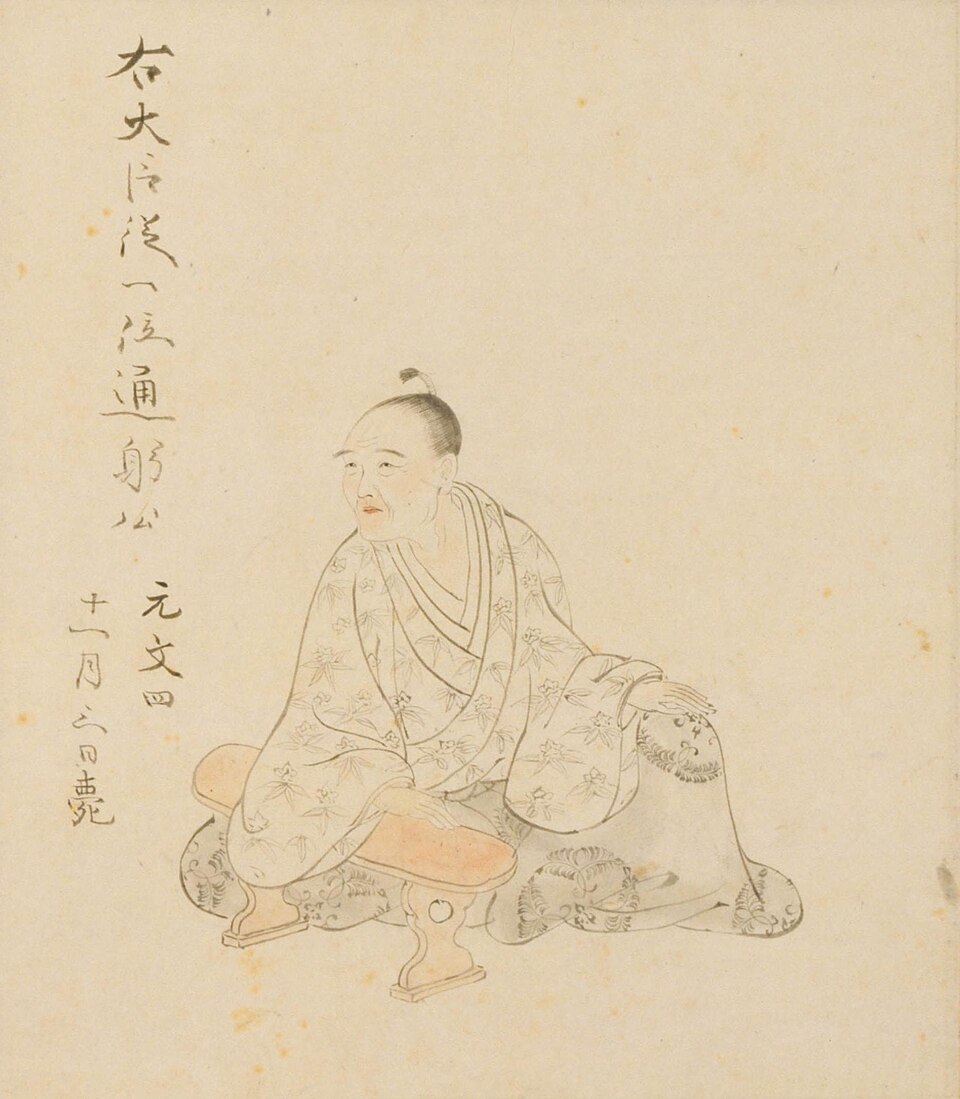 右大臣従一位通躬公
元文四
十一月三日薨